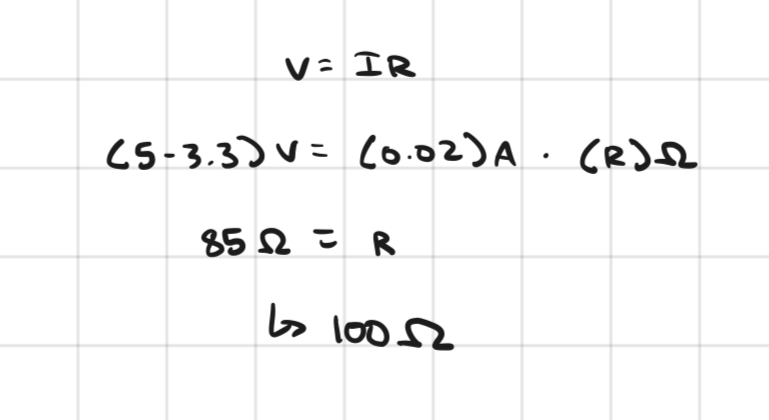 V = IR
(5-3.3)V = (0.02)A · (R)Ω
85Ω = R
↳ 100Ω